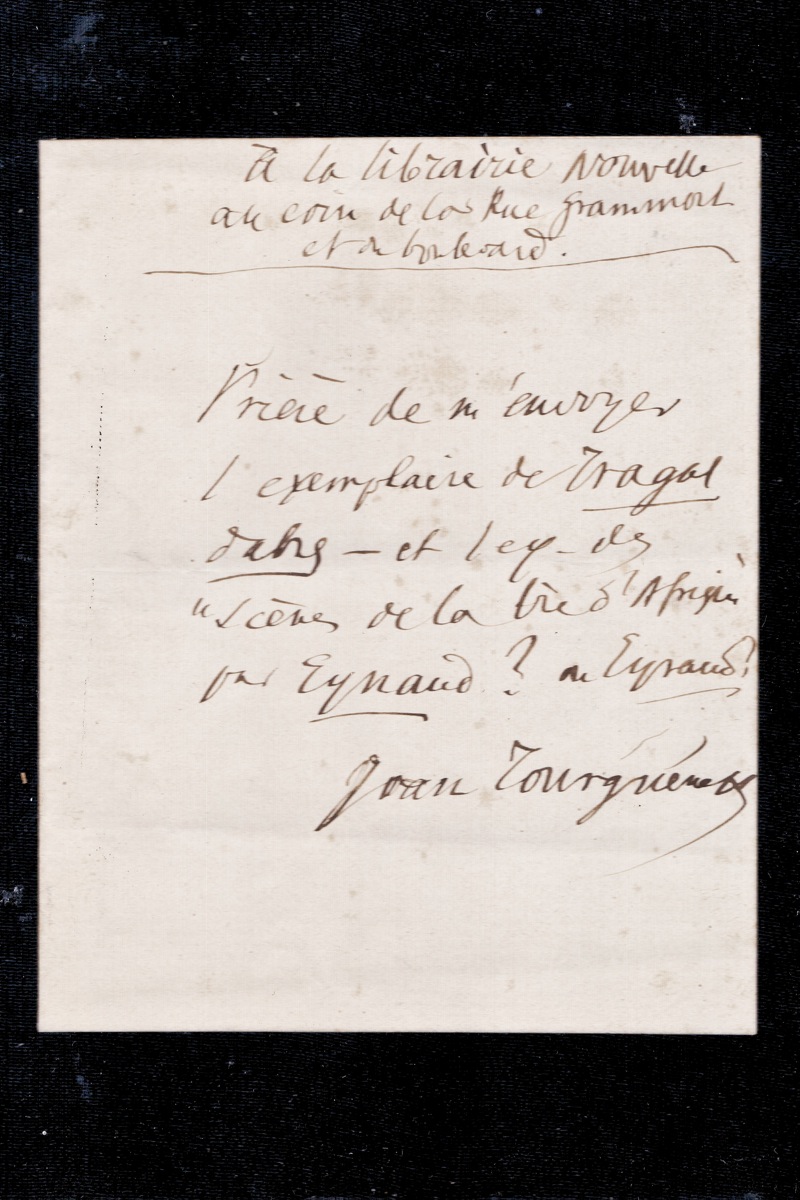 À la librairie Nouvelle
au coin de la Rue Grammont
et du boulevard.
Prière de m'envoyer
l'exemplaire de Tragal
dabas — et l'ex. des
"Scènes de la vie d'Afrique
par Eynaud? ou Eyraud?
Ivan Tourguéneff